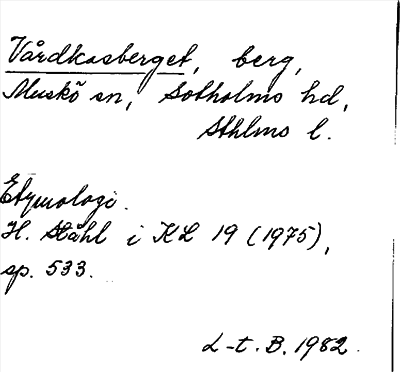 Vårdkasberget, berg,
Muskö sn, Sotholms hd,
Sthlms l.
Etymologi.
H. Ståhl i KL 19 (1975),
sp. 533.
L-t. B. 1982.